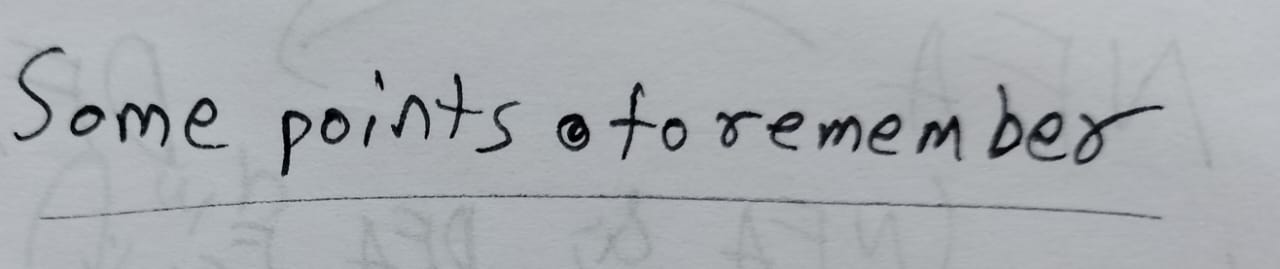 Some points to remember